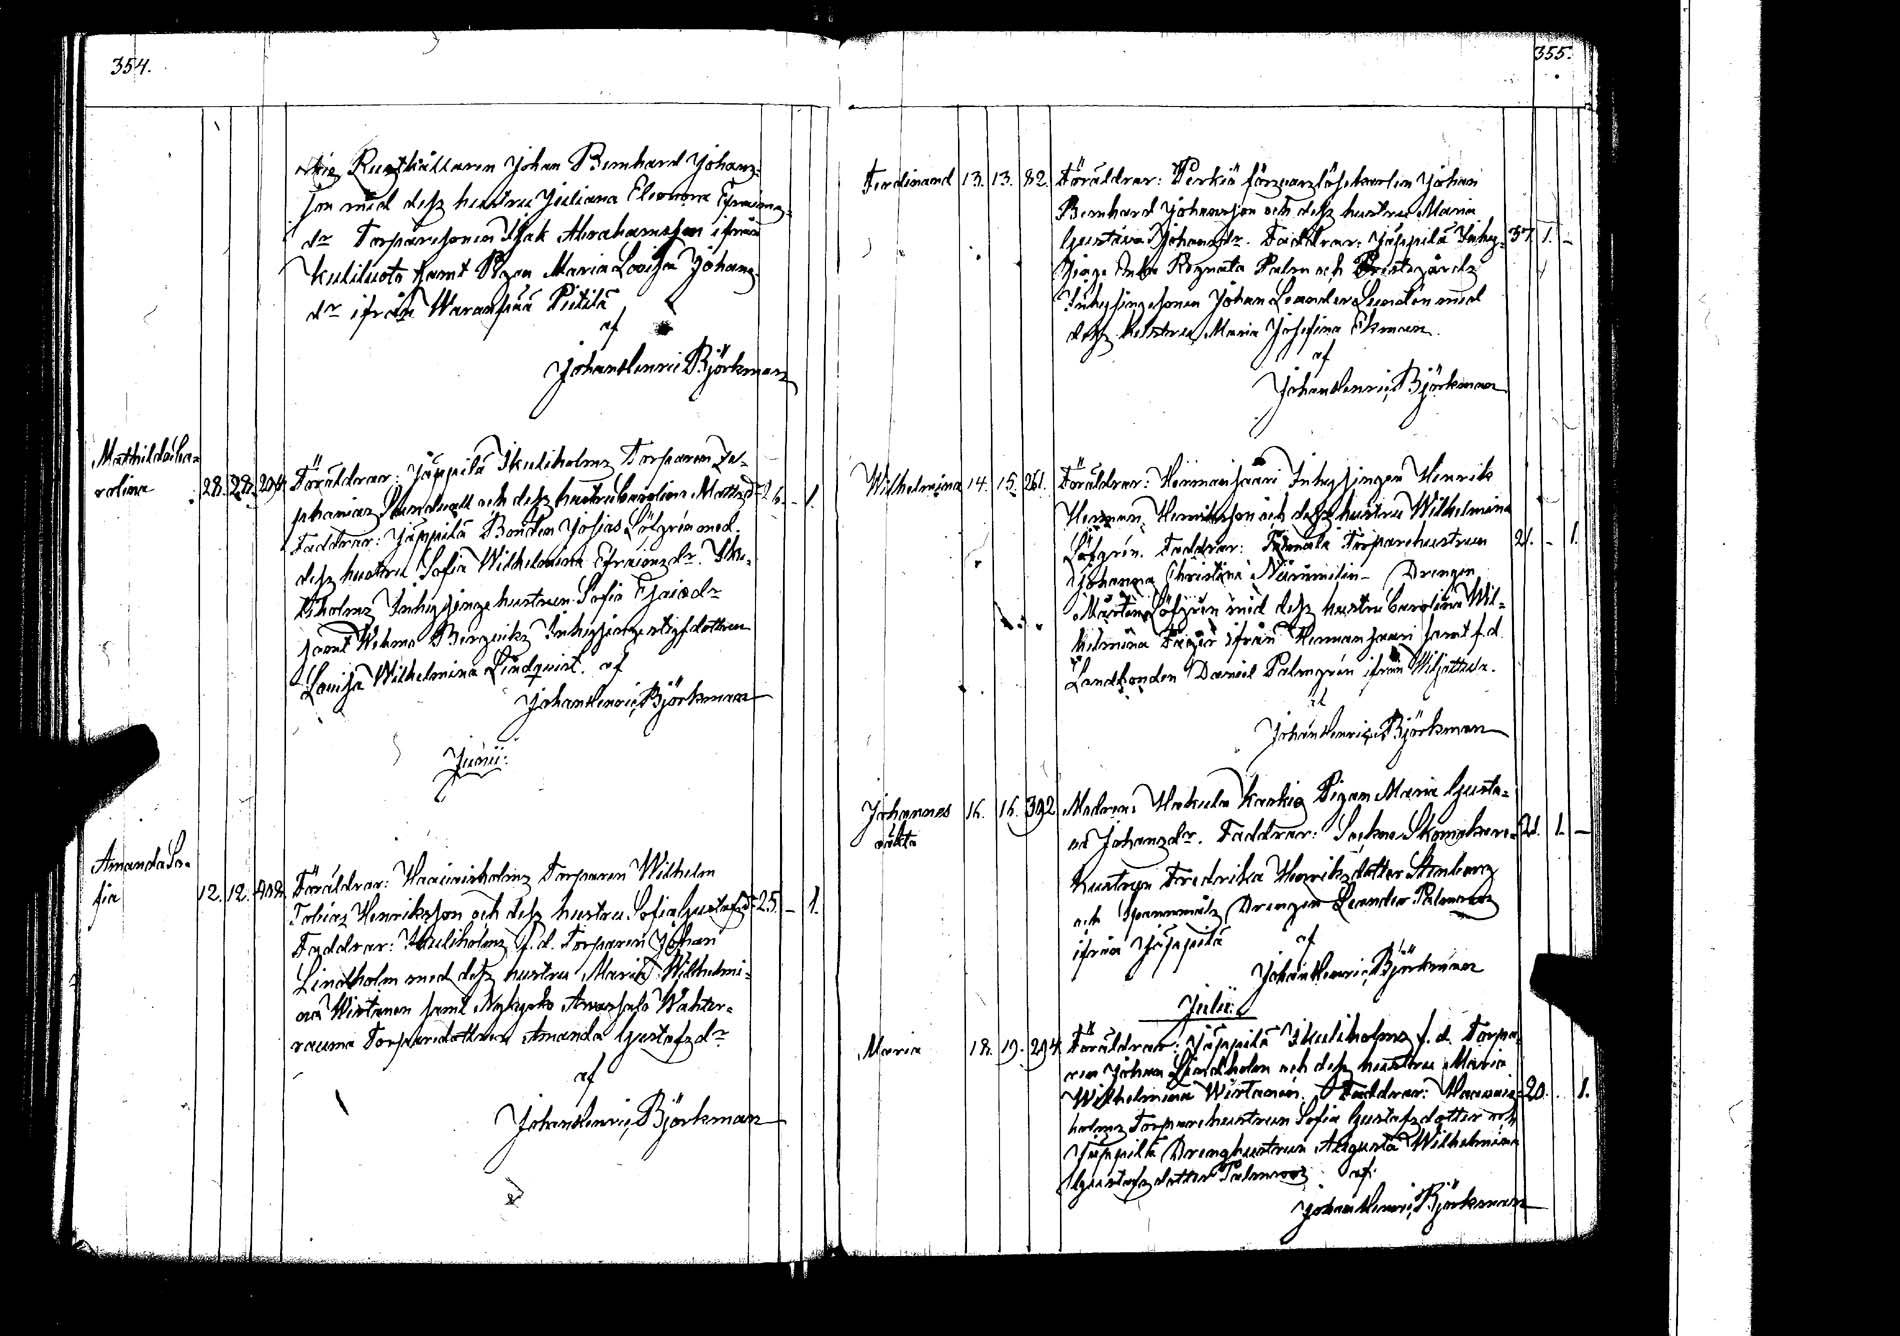 354.
Rusthållaren Johan Bernhard Johans-
son med dess hustru Juliana Eleonora Efraims-
dr Torparesonen Isak Abrahamsson ifrån
Kuliluoto samt Pigan Maria Lovisa Johans-
dr ifrån Waranpää Pietilä
af
Johan Henric Björkman
Mathilda Ca-
rolina 28. 28. 294 Föräldrar: Jäppilä Ikuliholms Torparen Ze-
phanias Sundvall och dess hustru Carolina Matsdr 26. - 1.
Faddrar: Jäppilä Bonden Josias Löfgrén med
dess hustru Sofia Wilhelmina Efraimsdr. Iku-
liholms Inhysinge hustrun Sofia Esaiædr
samt Wehma Inhysinge styfdottren
Lovisa Wilhelmina Lindquist. af
Johan Henric Björkman
Junii:
Amanda So-
fia 12. 12. 402. Föräldrar: Haavaisholms Torparen Wilhelm
Tobias Henriksson och dess hustru Sofia Gustafsdr 25. - 1.
Faddrar: Ikuliholms f.d. Torparen Johan
Lindholm med dess hustru Maria Wilhelmi-
na Wirtanen samt Nykyrko Wahter-
rauma Torparedottren Amanda Gustafsdr
af
Johan Henric Björkman
355.
Ferdinand 13. 13. 82. Föräldrar: Perkiö försvarslöse karlen Johan
Bernhard Johansson och dess hustru Maria
Gustava Johansdr. Faddrar: Jäppilä Inhy- 37. 1. -
singe Enka Regnata Palm och Prestgårds
Inhysingesonen Johan Leander Lundén med
dess hustru Maria Josefina Ekman.
af
Johan Henric Björkman
Wilhelmina 14. 15. 261. Föräldrar: Hermansaari Inhysingen Henrik
Herman Henriksson och dess hustru Wilhelmina
Löfgrén. Faddrar: Torparehustrun 21. - 1.
Johanna Christina Drengen
Mårten Löfgrén med dess hustru Carolina Wil-
helmina ifrån Hermansaari samt f.d.
Landbonden Daniel Palmgrén ifrån Wiljattula.
af
Johan Henric Björkman
Johannes
oäkta 16. 16. 302 Modren: Hakula Karkis Pigan Maria Gusta-
va Johansdr. Faddrar: Sockne Skomakare- 21. 1. -
hustrun Fredrika Henriksdotter Stenberg
och Spannmåls Drengen Leander Palmroos
ifrån Jäppilä
af
Johan Henric Björkman
Julii:
Maria 18. 19. 294 Föräldrar: Jäppilä Ikuliholms f.d. Torpa-
ren Johan Lindholm och dess hustru Maria
Wilhelmina Wirtanen. Faddrar: Haavais- 20. 1.
holms Torparehustrun Sofia Gustafsdotter och
Jäppilä Drenghustrun Augusta Wilhelmina
Gustafsdotter Palmroos af
Johan Henric Björkman